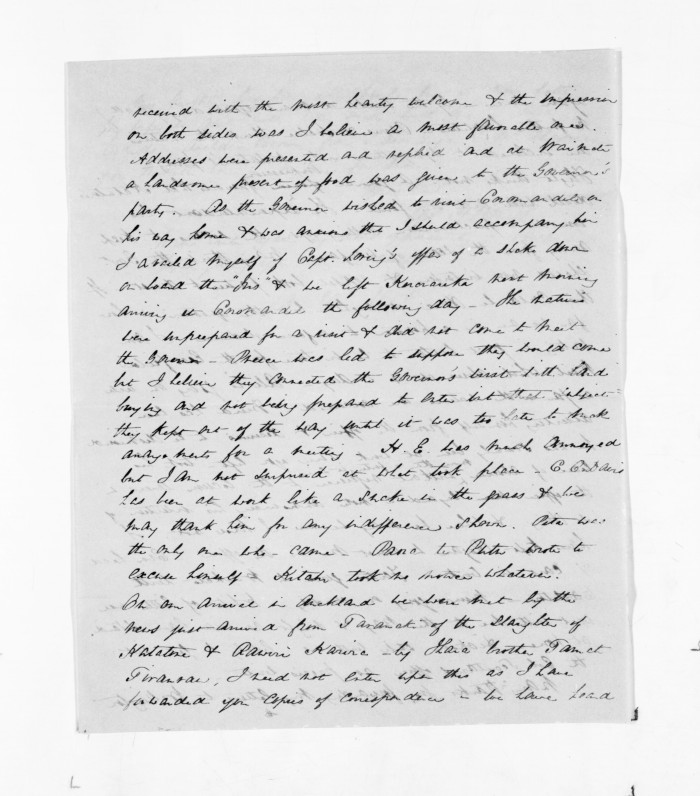 received with the most hearty welcome & the impression
on both sides was I believe a most favorable one.
Addresses were presented and replied and at Waimate
a handsome present of food was given to the Governor's
party. As the Governor wished to visit Coromandel on
his way home & was anxious that I should accompany him
I availed myself of Capt. Loring's offer of a shake down
on board the "Iris" & we left Kororareka next morning
arriving at Coromandel the following day - The natives
were unprepared for a visit & did not come to meet
the Governor - Preece was led to suppose they would come
but I believe they connected the Governor's visit with land
buying and not being prepared to enter upon that subject -
they kept out of the way until it was too late to make
arrangements for a meeting - H. E. was much annoyed
but I am not surprised at what took place - C. O. Davis
has been at work like a snake in the grass & we
may thank him for any indifference shewn. Pita was
the only one who came. Paora te Putu wrote to
excuse himself & Kitahi took no notice whatever.
On our arrival in Auckland we were met by the
news just arrived from Taranaki of the slaughter of
Katatore & Rawiri Karira - by Ihaia brother Tamati
Tiraurau, I need not enter upon this as I have
forwarded you copies of correspondence & we have heard